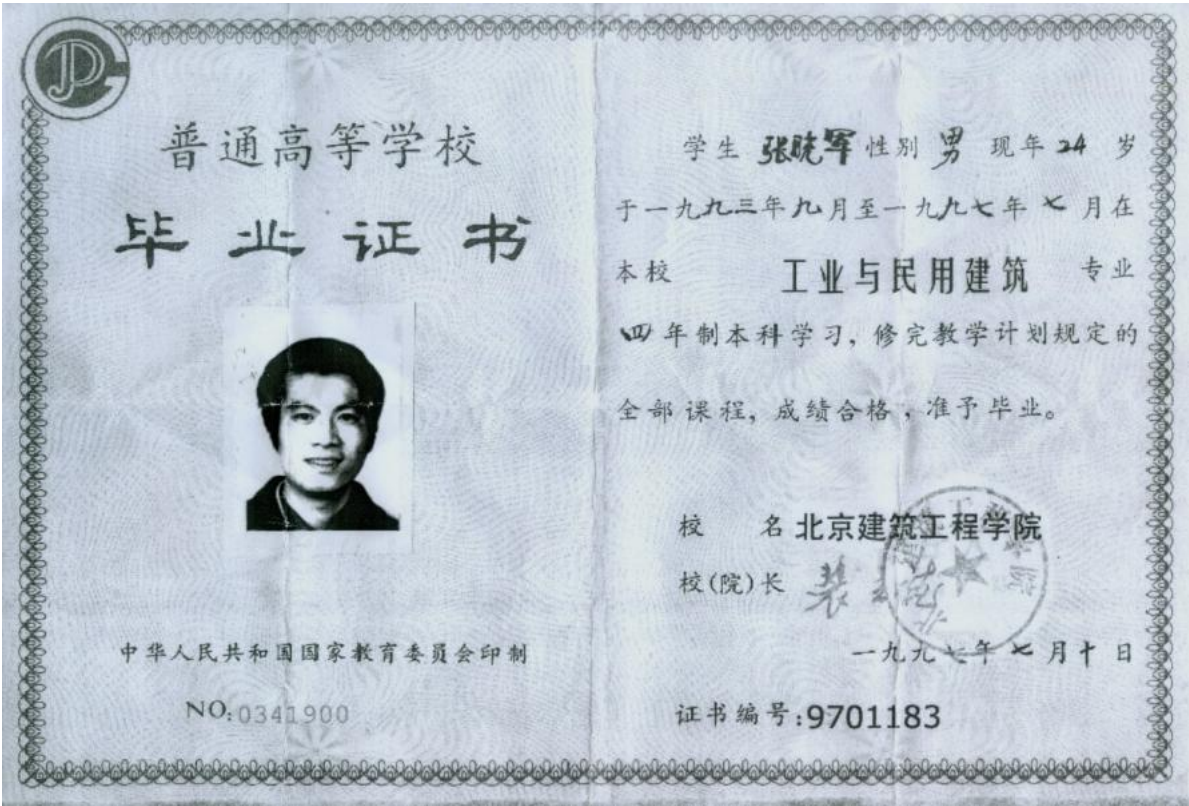 普通高等学校
毕业证书
中华人民共和国国家教育委员会印制
NO:0341900
学生 张晓军 性别 男 现年 24 岁
于一九九三年九月至一九九七年七月在
本校 工业与民用建筑 专业
四年制本科学习,修完教学计划规定的
全部课程,成绩合格,准予毕业。
校 名 北京建筑工程学院
校(院)长
一九九七年七月十日
证书编号:9701183